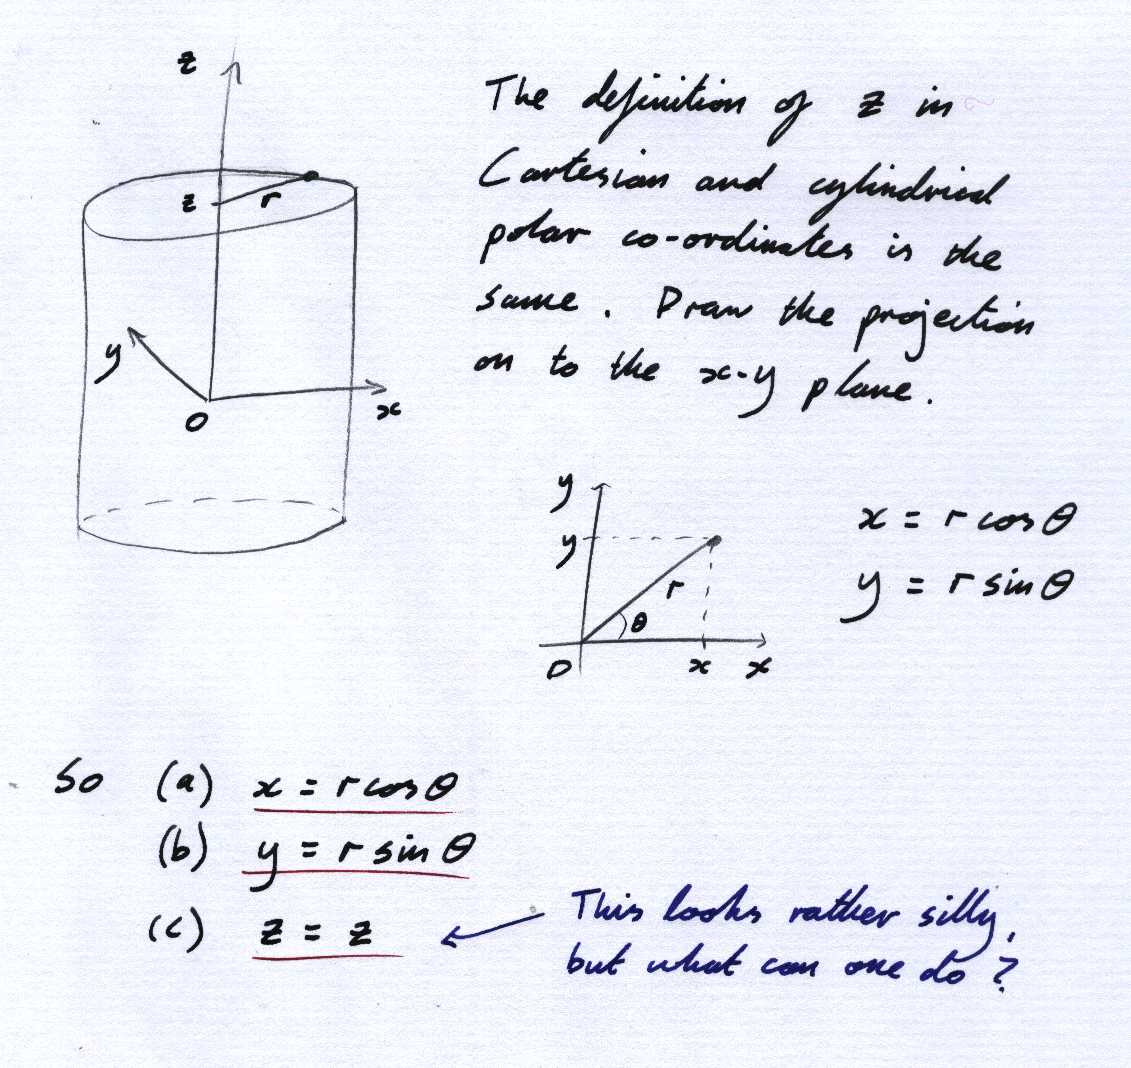 z
z
r
y
O
x
The definition of z in
Cartesian and cylindrical
polar co-ordinates is the
same. Draw the projection
on to the x-y plane.
y
y
r
θ
O
x
x
x = r cos θ
y = r sin θ
So (a) x = r cos θ
(b) y = r sin θ
(c) z = z
This looks rather silly,
but what can one do?